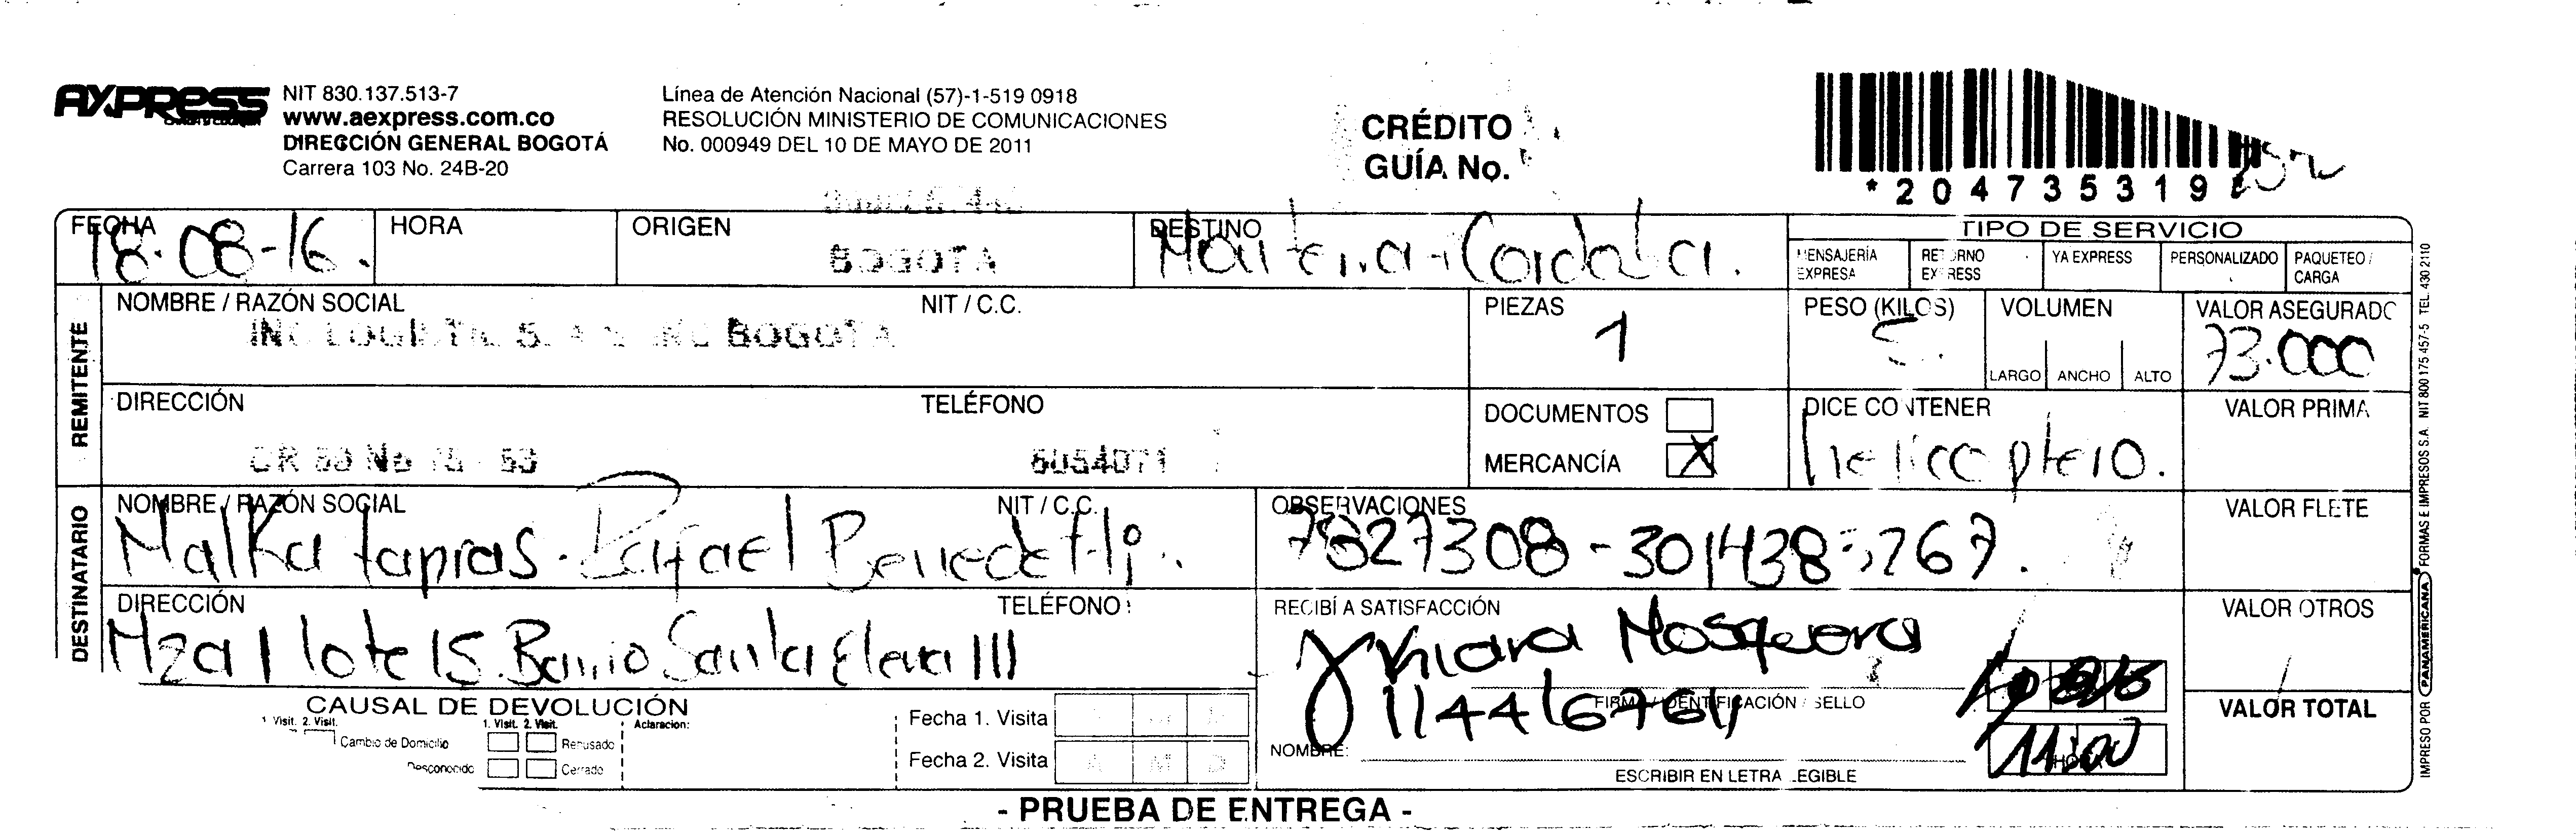 AXPRESS
NIT 830.137.513-7
www.aexpress.com.co
DIRECCIÓN GENERAL BOGOTÁ
Carrera 103 No. 24B-20
Línea de Atención Nacional (57)-1-519 0918
RESOLUCIÓN MINISTERIO DE COMUNICACIONES
No. 000949 DEL 10 DE MAYO DE 2011
CRÉDITO
GUÍA No.
*204735319
FECHA 18-08-16.
HORA
ORIGEN BOGOTA
DESTINO Monteria-Cordoba.
TIPO DE SERVICIO
MENSAJERÍA EXPRESA
RETORNO EXPRESS
YA EXPRESS
PERSONALIZADO
PAQUETEO / CARGA
REMITENTE
NOMBRE / RAZÓN SOCIAL
NIT / C.C.
BOGOTA
PIEZAS 1
PESO (KILOS) 5.
VOLUMEN
LARGO ANCHO ALTO
VALOR ASEGURADO
73.000
DIRECCIÓN
TELÉFONO
6054071
DOCUMENTOS
MERCANCÍA X
DICE CONTENER
helicoptero.
VALOR PRIMA
DESTINATARIO
NOMBRE / RAZÓN SOCIAL
NIT / C.C.
Malka tapias. Rafael Benedetti.
OBSERVACIONES
7827308-301438 267.
VALOR FLETE
DIRECCIÓN
TELÉFONO
Mza 1 lote 15. Barrio Santa Elena III
RECIBÍ A SATISFACCIÓN
Mosquera
FIRMA / IDENTIFICACIÓN / SELLO
NOMBRE:
ESCRIBIR EN LETRA LEGIBLE
11:00
HORA
VALOR OTROS
VALOR TOTAL
CAUSAL DE DEVOLUCIÓN
1. Visit. 2. Visit.
1. Visit. 2. Visit.
Aclaracion:
Cambio de Domicilio
Rehusado
Desconocido
Cerrado
Fecha 1. Visita
Fecha 2. Visita A M D
- PRUEBA DE ENTREGA -
IMPRESO POR PANAMERICANA FORMAS E IMPRESOS S.A. NIT 800 175 457-5 TEL. 430 2110